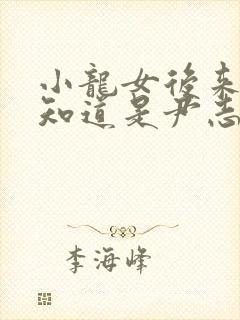 小龍女後來
知道是尹志
李海峰